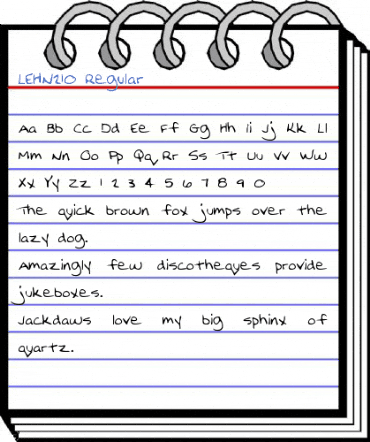 LEHN210 Regular
Aa Bb Cc Dd Ee Ff Gg Hh Ii Jj Kk Ll
Mm Nn Oo Pp Qq Rr Ss Tt Uu Vv Ww
Xx Yy Zz 1 2 3 4 5 6 7 8 9 0
The quick brown fox jumps over the
lazy dog.
Amazingly few discotheques provide
jukeboxes.
Jackdaws love my big sphinx of
quartz.